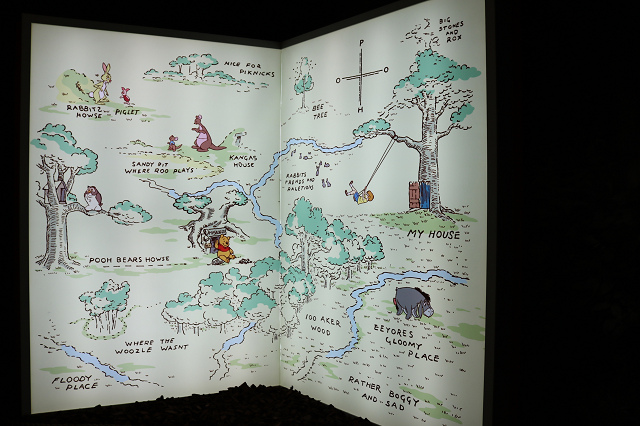 BIG
STONES
AND
ROX
P
O
O
H
NICE FOR
PIKNICKS
RABBITS
HOWSE
PIGLET
BEE
TREE
SANDY PIT
WHERE ROO PLAYS
KANGAS
HOUSE
RABBITS
FRENDS AND
RALETIONS
MY HOUSE
POOH BEARS HOWSE
100 AKER
WOOD
EEYORES
GLOOMY
PLACE
WHERE THE
WOOZLE WASNT
FLOODY
PLACE
RATHER BOGGY
AND SAD